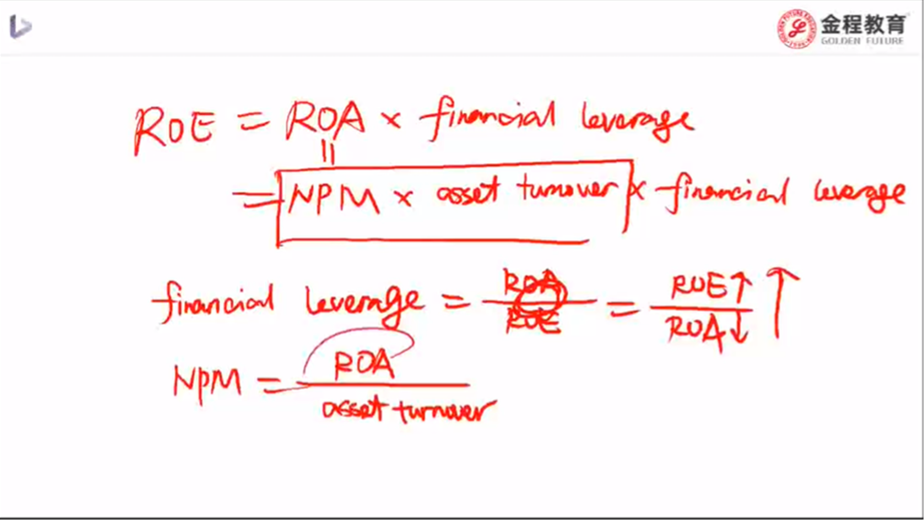 金程教育
GOLDEN FUTURE
ROE = ROA × financial leverage
=
= NPM × asset turnover × financial leverage
financial leverage = ROA / ROE = ROE↑ / ROA↓ ↑
NPM = ROA / asset turnover